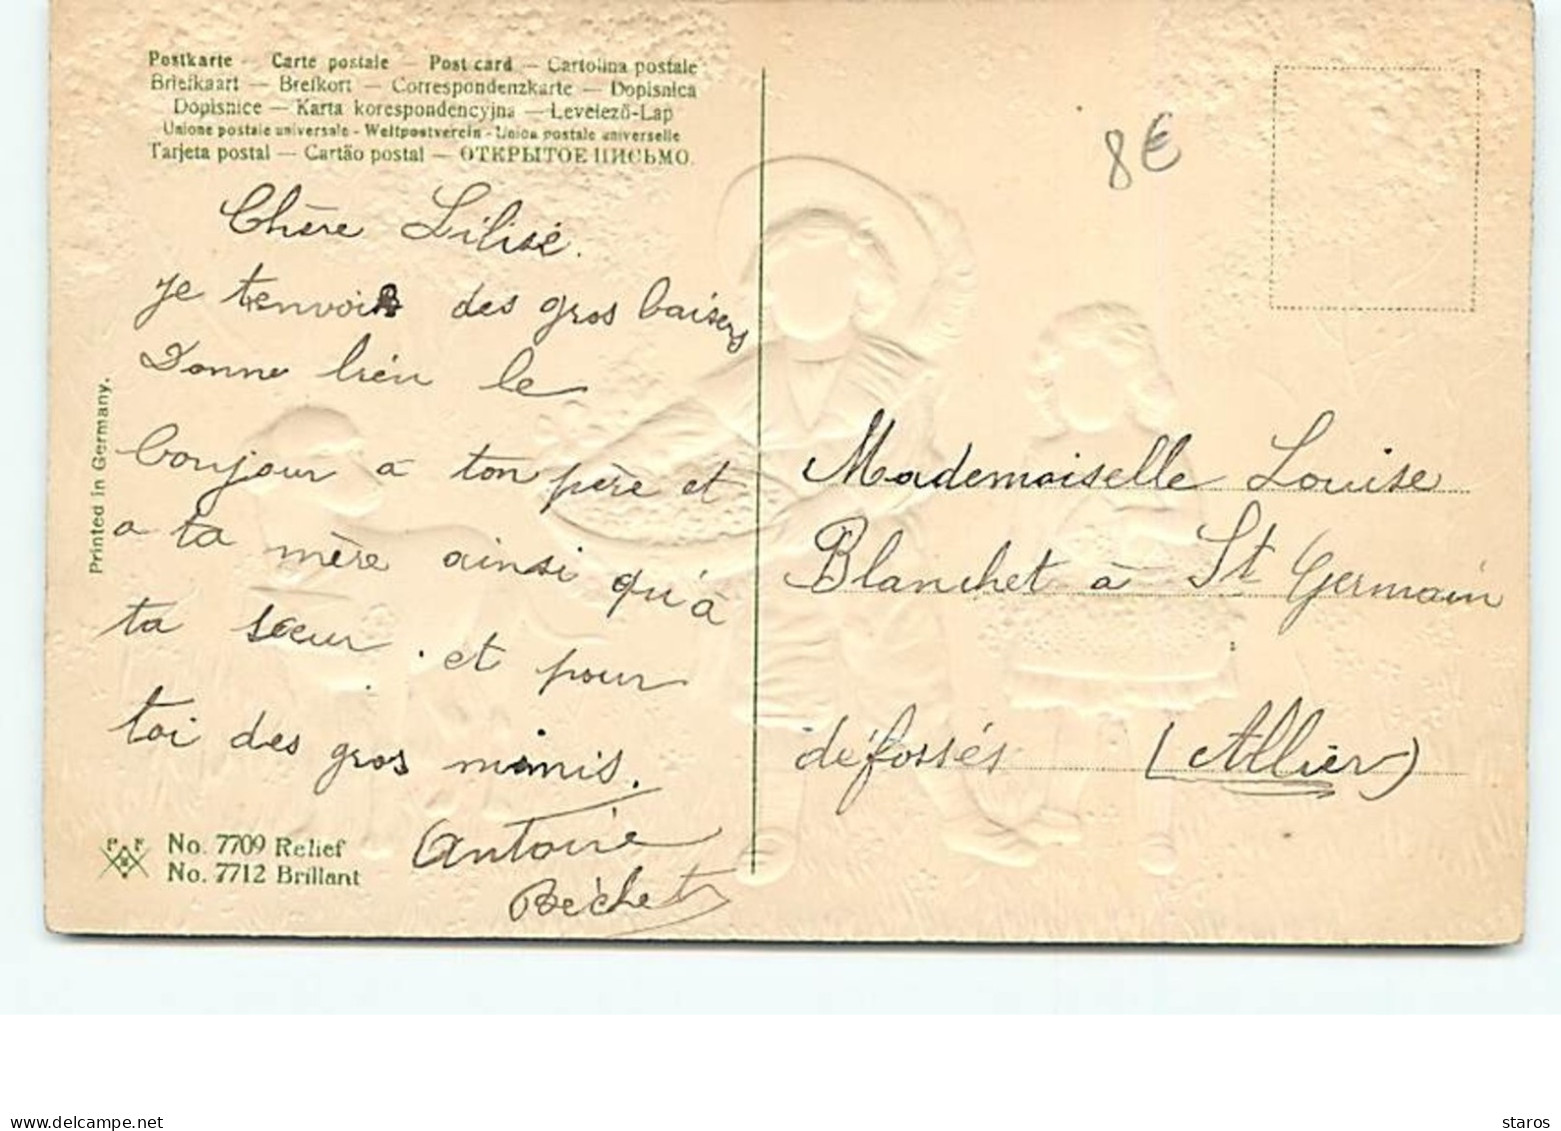 Postkarte — Carte postale — Post card — Cartolina postale
Briefkaart — Brefkort — Correspondenzkarte — Dopisnica
Dopisnice — Karta korespondencyjna — Levelező-Lap
Unione postale universale - Weltpostverein - Union postale universelle
Tarjeta postal — Cartão postal — ОТКРЫТОЕ ПИСЬМО.
8€
Chère Lilisé.
je tenvois des gros baisers
Donne bien le
bonjour a ton père et
a ta mère ainsi qu'à
ta sœur. et pour
toi des gros mimis.
Antoine
Béchet
Printed in Germany.
PFB
No. 7709 Relief
No. 7712 Brillant
Mademoiselle Louise
Blanchet à St Germain
défossés (Allier)
delcampe.net
staros